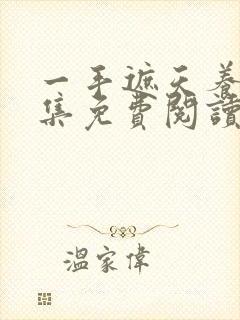 一手遮天養
集免費閱讀
溫家偉